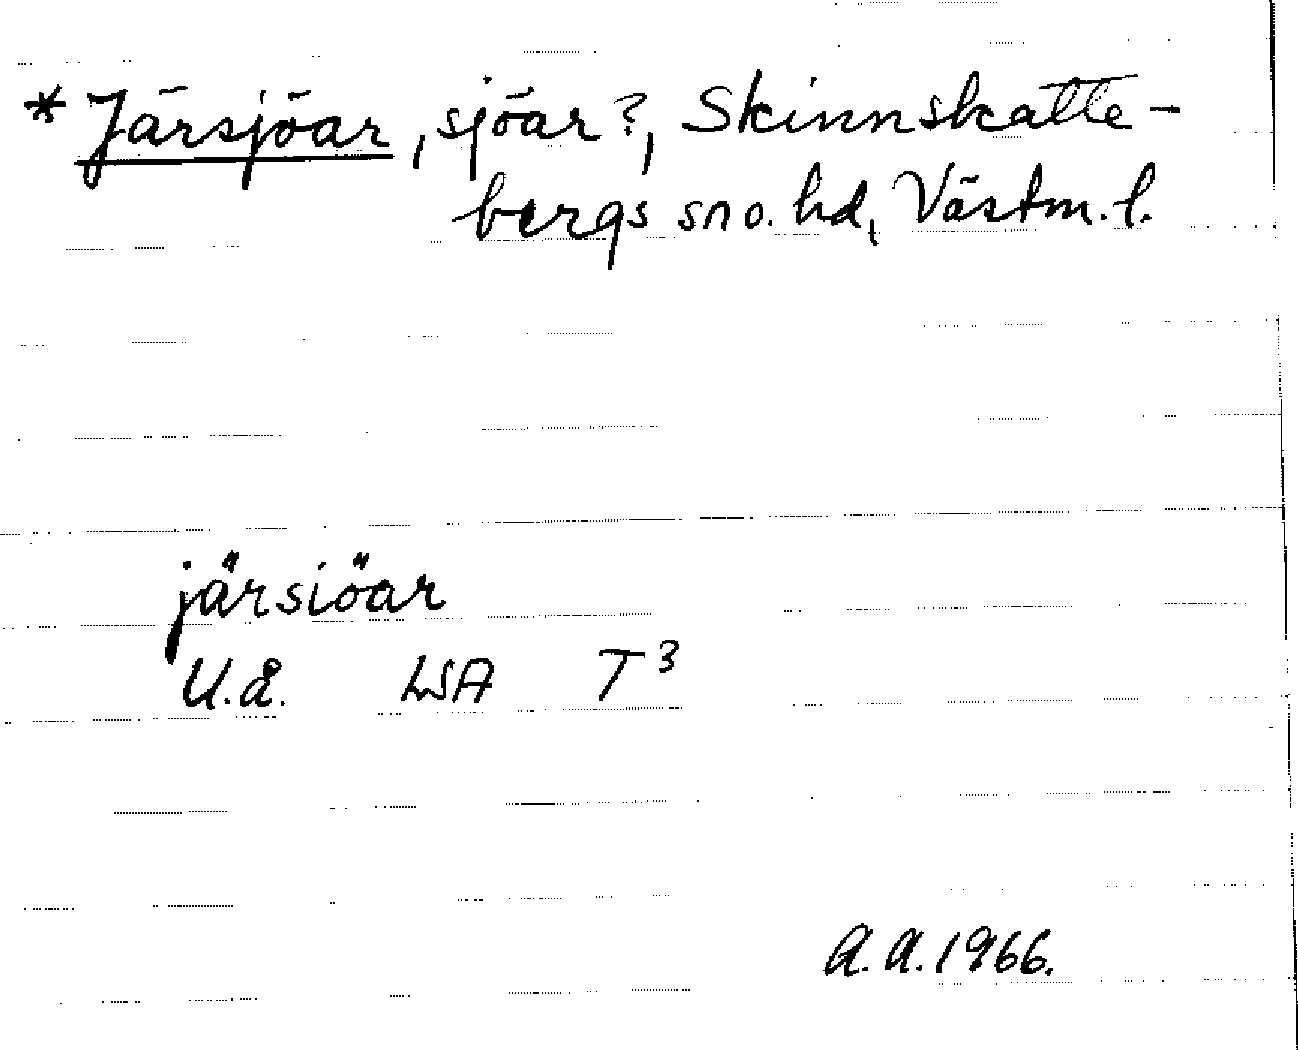 * Järsjöar, sjöar?, Skinnskatte-
bergs sno. hd, Västm. l.
järsiöar
U.å. LSA T3
A.A. 1966.